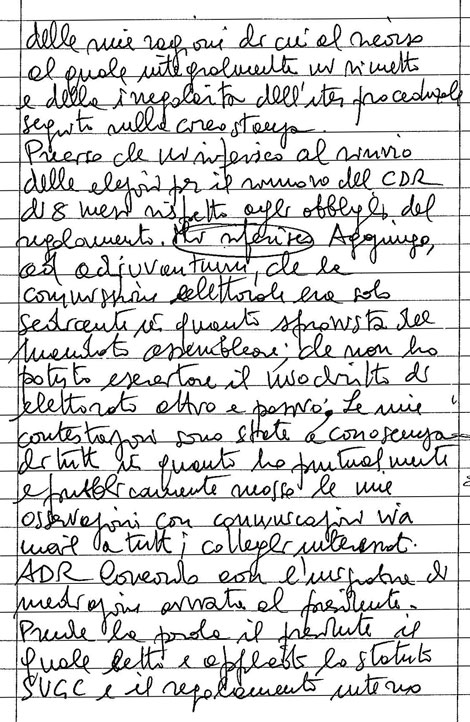 delle mie ragioni di cui al ricorso
al quale integralmente mi rimetto
e della irregolarità dell'iter procedurale
seguito nella circostanza.
Preciso che mi riferisco al rinvio
delle elezioni per il rinnovo del CDR
di 8 mesi rispetto agli obblighi del
regolamento. Mi riferisco Aggiungo,
ad adjuvantum, che la
commissione elettorale era solo
sedicente in quanto sprovvista del
mandato assembleare; che non ho
potuto esercitare il mio diritto di
elettorato attivo e passivo. Le mie
contestazioni sono state a conoscenza
di tutti in quanto ho puntualmente
e pubblicamente mosso le mie
osservazioni con comunicazioni via
mail a tutti i colleghi interessati.
ADR Concordo con l'
mediazione avviata al presidente.
Prende la parola il presidente il
quale letti e applicato lo statuto
SVGC e il regolamento interno